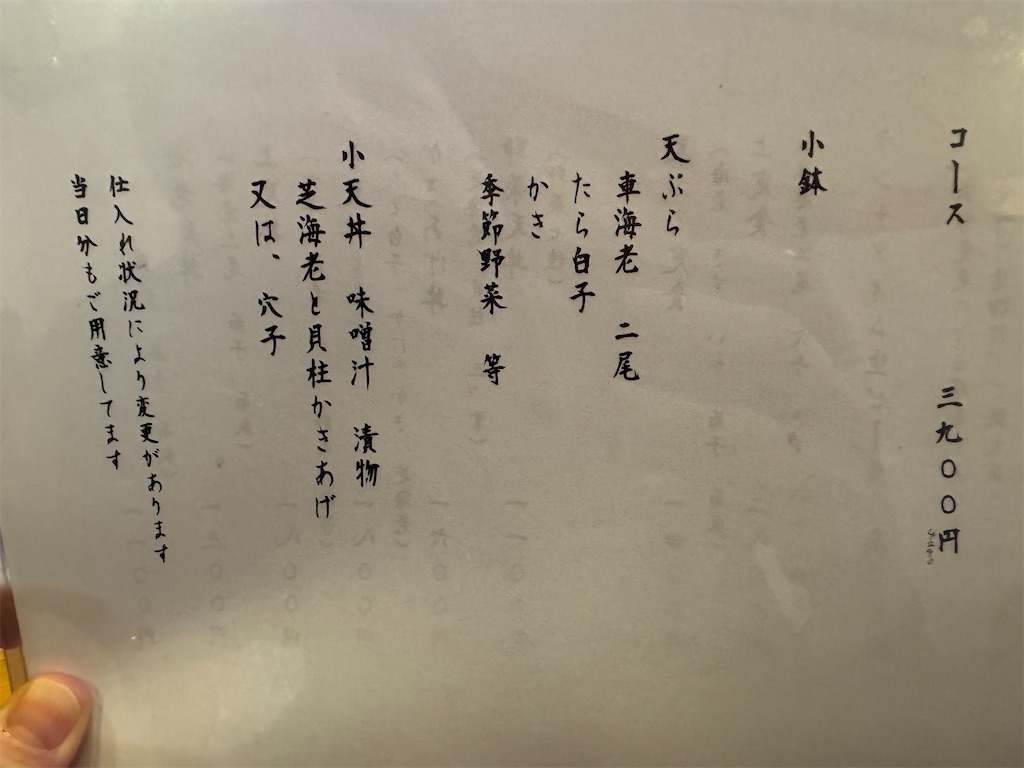 コース 三九〇〇円
小鉢
天ぷら
車海老 二尾
たら白子
かき
季節野菜 等
小天丼 味噌汁 漬物
芝海老と貝柱かきあげ
又は、穴子
仕入れ状況により変更があります
当日分もご用意してます